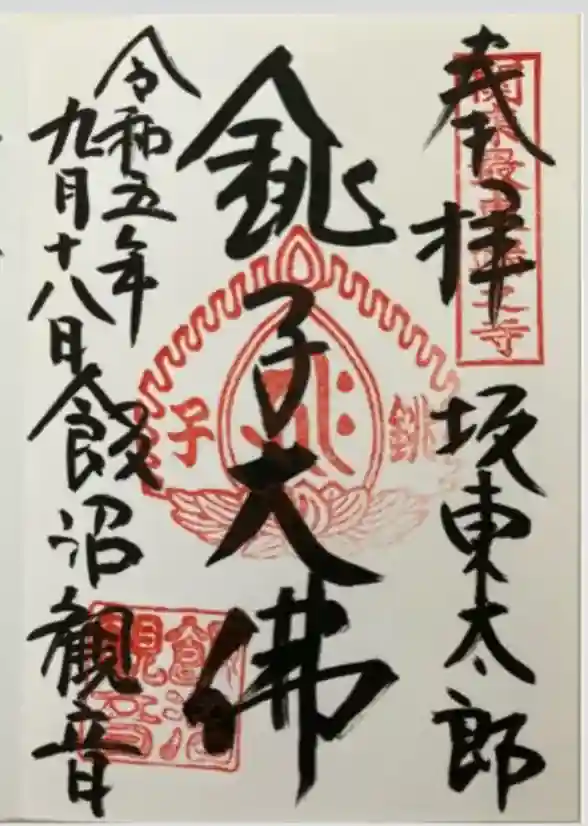 奉拝
坂東太郎
銚子大佛
令和五年
九月十八日
飯沼観音
銚子
飯沼
観音